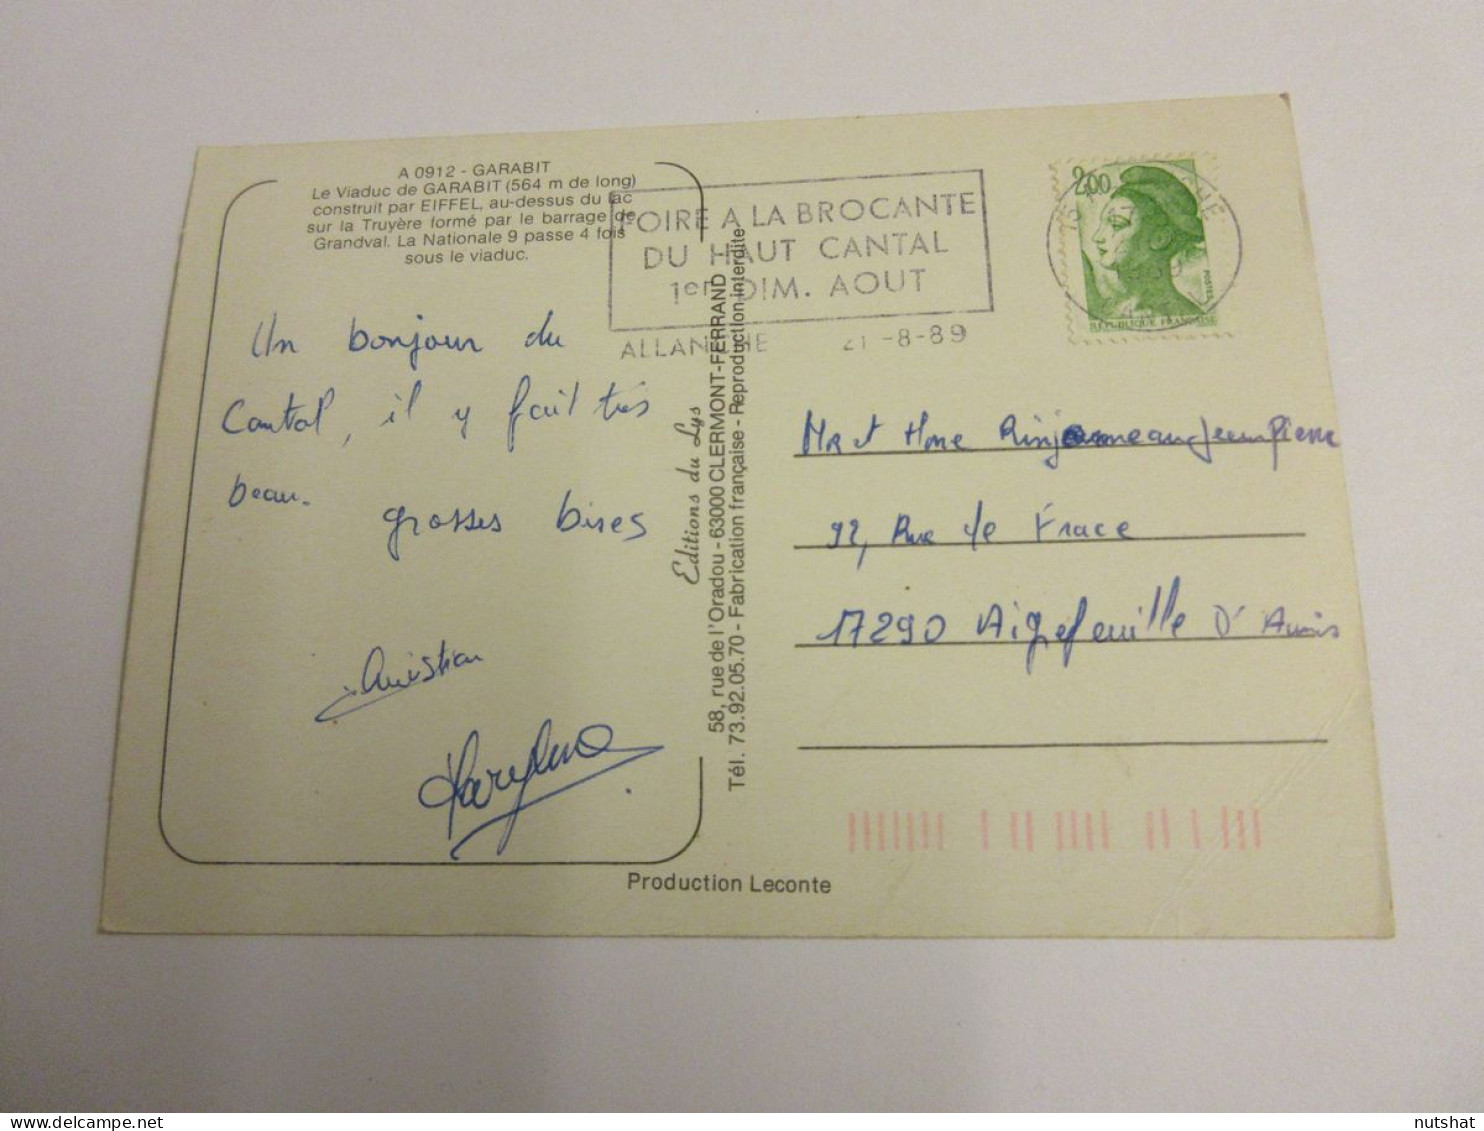 A 0912 - GARABIT
Le Viaduc de GARABIT (564 m de long)
construit par EIFFEL, au-dessus du lac
sur la Truyère formé par le barrage de
Grandval. La Nationale 9 passe 4 fois
sous le viaduc.
Un bonjour du
Cantal, il y fait très
beau.
grosses bises
Christian
FOIRE A LA BROCANTE
DU HAUT CANTAL
1er DIM. AOUT
ALLANCHE 21-8-89
2,00
POSTES
REPUBLIQUE FRANÇAISE
Editions du Lys
58, rue de l'Oradou - 63000 CLERMONT-FERRAND
Tél. 73.92.05.70 - Fabrication française - Reproduction interdite
Mr et Mme Jean Pierre
92, Rue de
17290 Aigrefeuille D'Aunis
Production Leconte
nutshat